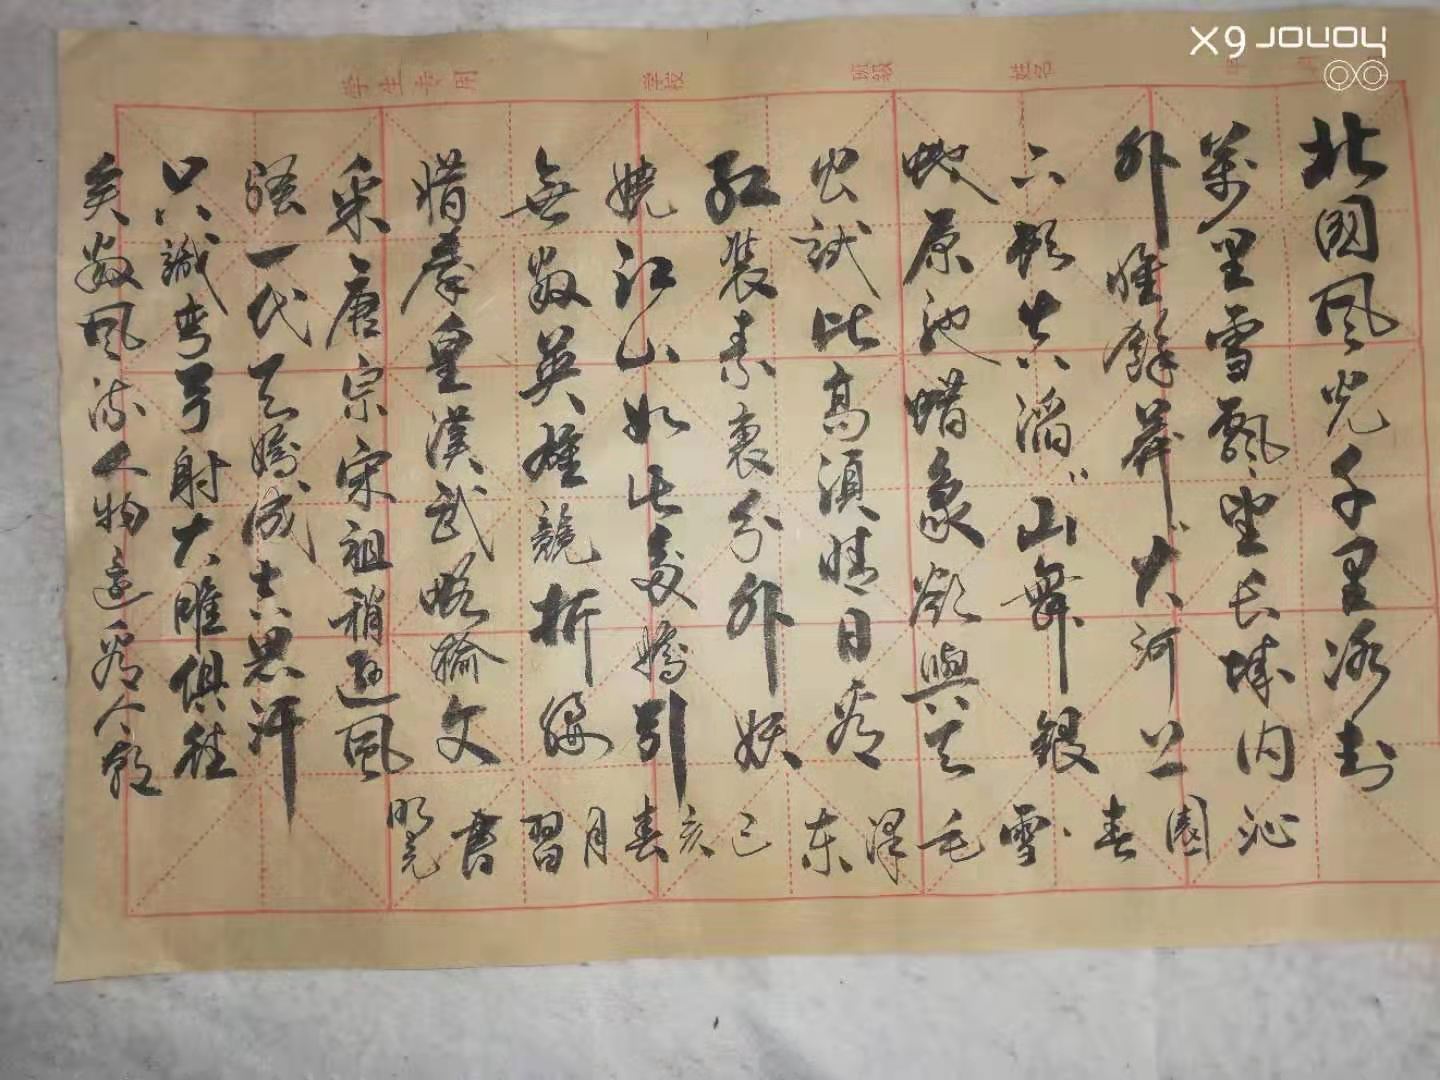 学生专用 学校 班级 姓名
北國风光千里冰封
萬里雪飘望长城内
外唯餘莽〃大河上
下頓失滔〃山舞銀
蛇原池蜡象欲與天
公試比高須晴日看
红装素裹分外妖
娆江山如此多嬌引
無數英雄競折腰
惜秦皇漢武略输文
采唐宗宋祖稍遜風
骚一代天嬌成吉思汗
只識弯弓射大雕俱往
矣數风流人物還看今朝
沁園春雪毛泽东己亥春月習書
HONOR 9X